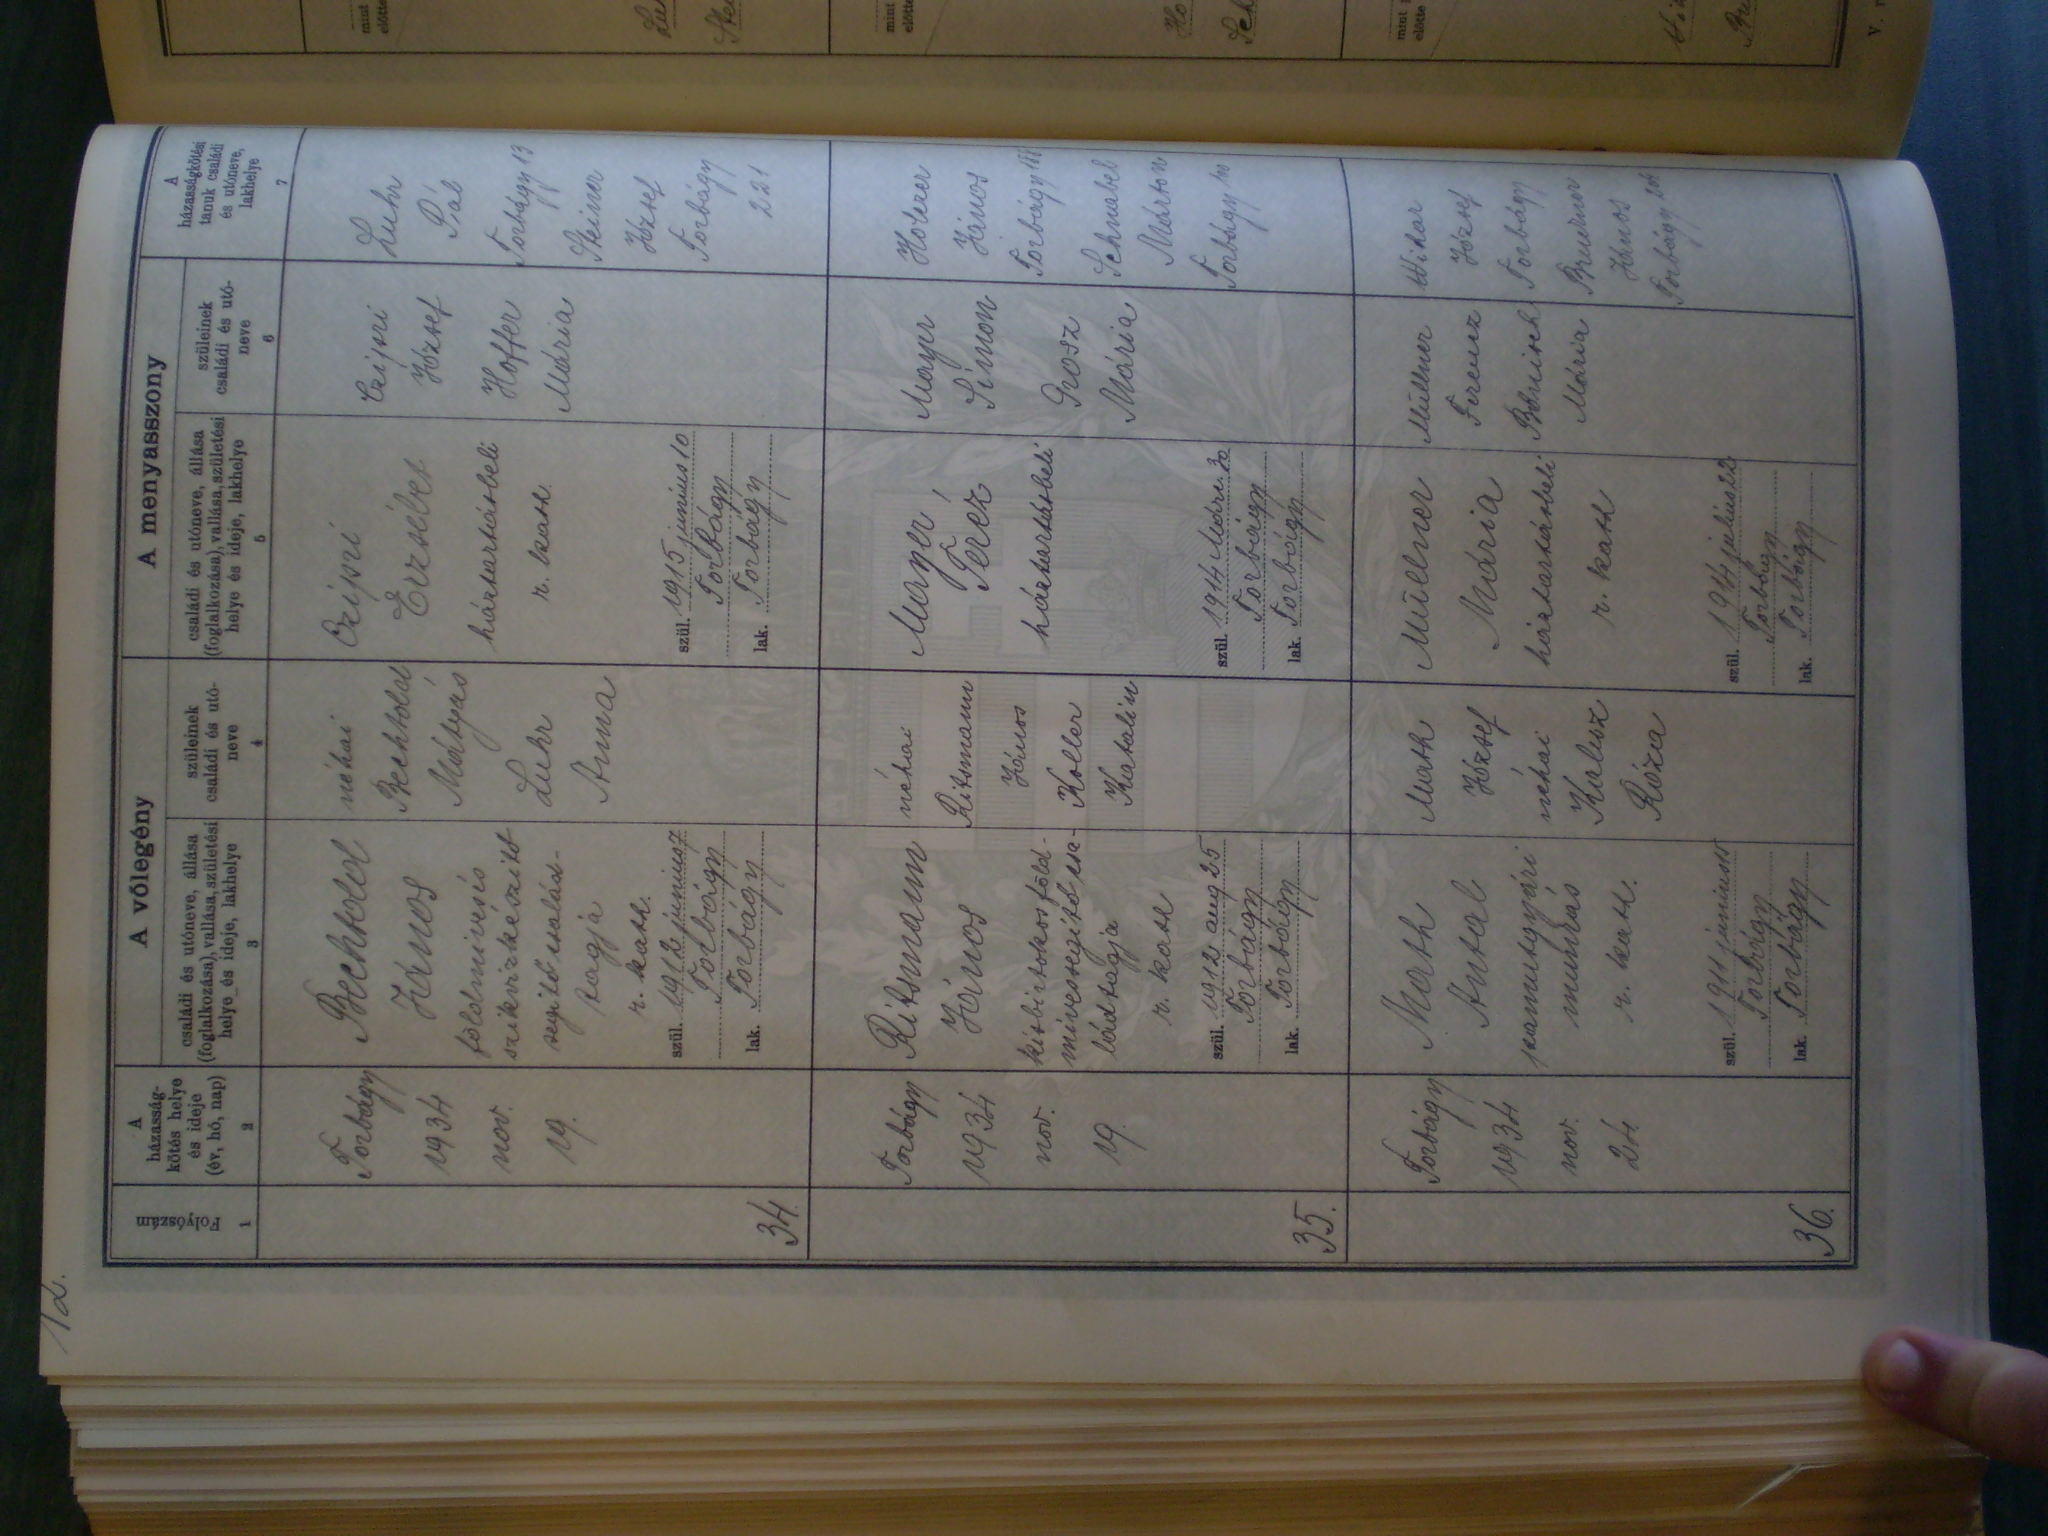 12.
Folyószám
1
A
házasság-
kötés helye
és ideje
(év, hó, nap)
2
A vőlegény
családi és utóneve, állása
(foglalkozása), vallása, születési
helye és ideje, lakhelye
3
szüleinek
családi és utó-
neve
4
A menyasszony
családi és utóneve, állása
(foglalkozása), vallása, születési
helye és ideje, lakhelye
5
szüleinek
családi és utó-
neve
6
A
házasságkötési
tanuk családi
és utóneve,
lakhelye
7
34.
Torbágy
1934
nov.
19.
Bechtold
János
földmíves és
szikvízkészítő
segítő család-
tagja
r. kath.
szül. 1912 junius 7
Torbágy
lak. Torbágy
néhai
Bechtold
Mátyás
Luhr
Anna
Czipri
Erzsébet
háztartásbeli
r. kath.
szül. 1915 junius 10
Torbágy
lak. Torbágy
Czipri
József
Hoffer
Mária
Luhr
Pál
Torbágy 13
Steiner
József
Torbágy
221
35.
Torbágy
1934
nov.
19.
Ritsmann
János
kisbirtokos föld-
míves segítő csa-
ládtagja
r. kath
szül. 1912 aug 25
Torbágy
lak. Torbágy
néhai
Ritsmann
János
Koller
Katalin
Mayer
Teréz
háztartásbeli
szül. 1914 márc. 30
Torbágy
lak. Torbágy
Mayer
Simon
Grosz
Mária
Holczer
János
Torbágy
Schnabel
Márton
Torbágy
36.
Torbágy
1934
nov.
24.
Math
Antal
pamutgyári
munkás
r. kath.
szül. 1911 junius 15
Torbágy
lak. Torbágy
Math
József
néhai
Kalesz
Róza
Müllner
Mária
háztartásbeli
r. kath
szül. 1914 julius 22
Torbágy
lak. Torbágy
Müllner
Ferencz
Mária
József
Torbágy
János
Torbágy
mint
előtte
mint
előtte
mint
előtte
V.